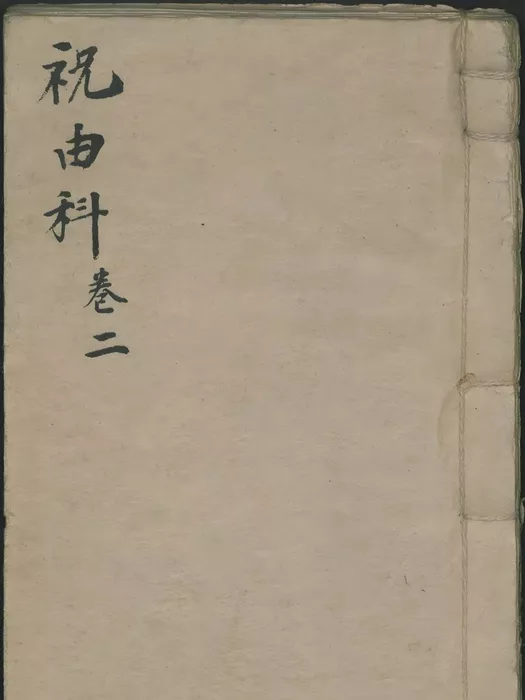 祝由科卷二